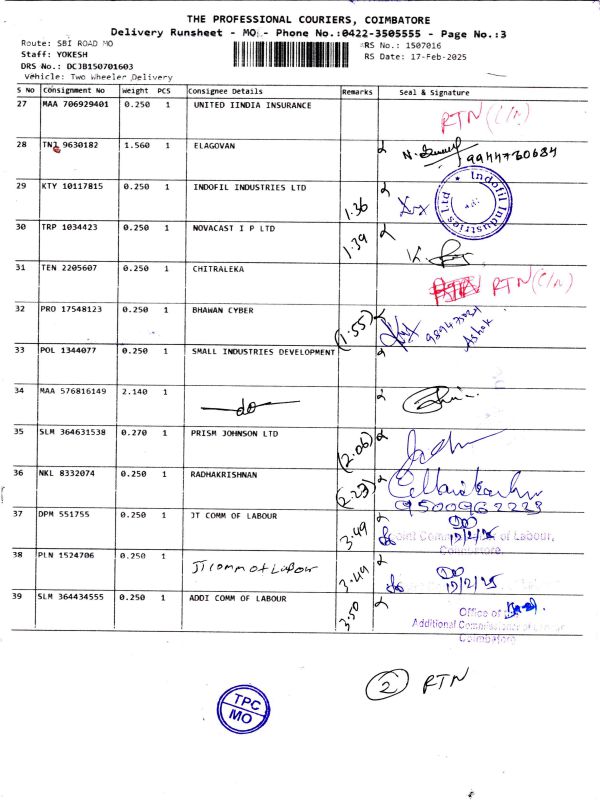 THE PROFESSIONAL COURIERS, COIMBATORE
Delivery Runsheet - MO - Phone No.:0422-3505555 - Page No.:3
Route: SBI ROAD MO RS No.: 1507016
Staff: YOKESH RS Date: 17-Feb-2025
DRS No.: DCJB150701603
Vehicle: Two Wheeler Delivery
S No Consignment No Weight PCS Consignee Details Remarks Seal & Signature
27 MAA 706929401 0.250 1 UNITED IINDIA INSURANCE RTN (C/N)
28 TN1 9630182 1.560 1 ELAGOVAN 9944760684
29 KTY 10117815 0.250 1 INDOFIL INDUSTRIES LTD 1.36 Indofil Industries Ltd
30 TRP 1034423 0.250 1 NOVACAST I P LTD 1.39
31 TEN 2205607 0.250 1 CHITRALEKA RTN (C/N)
32 PRO 17548123 0.250 1 BHAWAN CYBER (1.55) Ashok
33 POL 1344077 0.250 1 SMALL INDUSTRIES DEVELOPMENT
34 MAA 576816149 2.140 1 do
35 SLM 364631538 0.270 1 PRISM JOHNSON LTD (2.06)
36 NKL 8332074 0.250 1 RADHAKRISHNAN (2.23) 9500962223
37 DPM 551755 0.250 1 JT COMM OF LABOUR 3.49 of Labour,
Coimbatore
38 PLN 1524706 0.250 1 JT Comm of Labour 3.49 17/2/25
39 SLM 364434555 0.250 1 ADDI COMM OF LABOUR 3.50 Office of
Additional
Coimbatore
2 RTN
TPC
MO